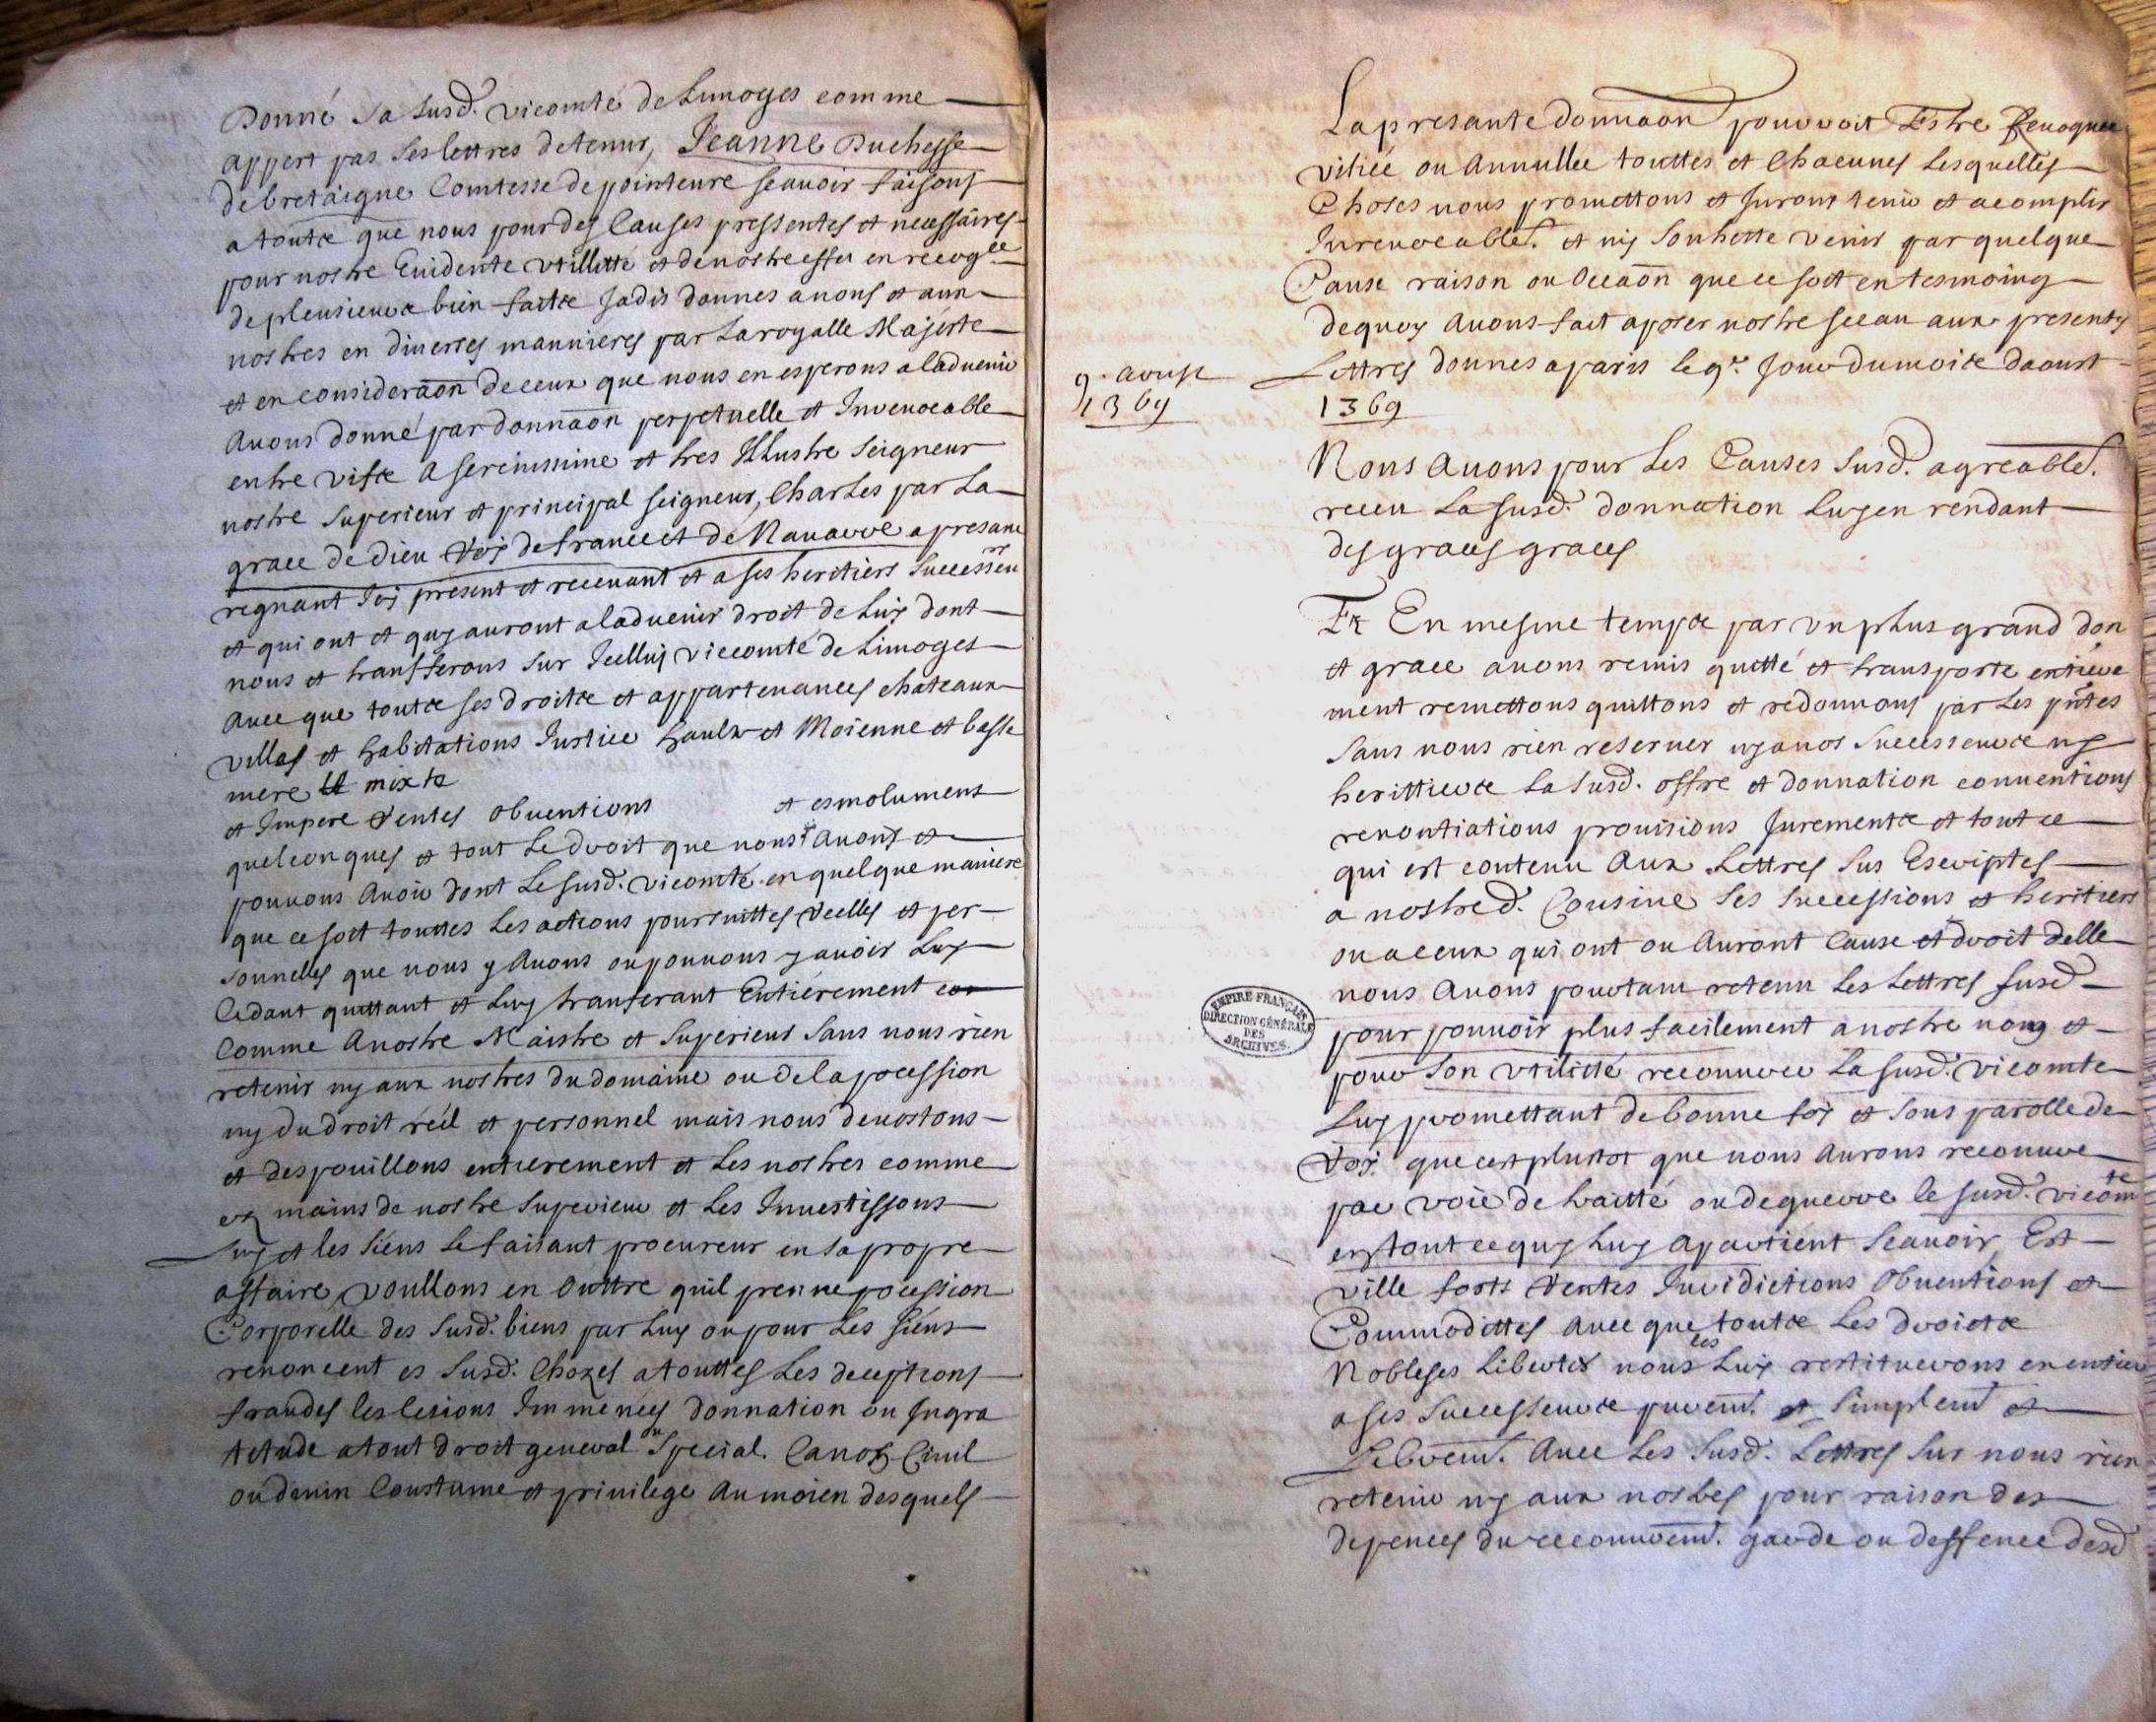 Donné sa susd. vicomté de Limoges comme
appert pas ses lettres detenur, Jeanne Duchesse
de bretaigne Comtesse de pointeure scauoir faisons
a toutx que nous pour des Causes pressentes et necessaires
pour nostre Euidente vtillitté et de nostre effu en recog.ce
de pleusieurx bien faitx Jadis donnes a nous et aux
nostres en diuerses mannieres par La royalle Majeste
et en consideraôn de ceux que nous en esperons a laduenir
Auons donné par donnaôn perpetuelle et Inreuocable
entre vifx A serenissime et tres Illustre Seigneur
nostre Superieur et principal seigneur, Charles par La
grace de dieu Roy de france et de Nauarre a presant
regnant Icy present et receuant et a ses heritiers Successeurs
et qui ont et quy auront a laduenir droit de Luy dont
nous et transferons sur Icelluy viccomté de Limoges
Auec que toutx ses droitx et appartenances chateaux
villes et habitations Justice haulx et Moienne et basse
mere et mixte
et Impere Rentes obuentions et esmolumens
quelconques et tout Le droit que nous y Auons et
pouuons Auoir dont Le susd. vicomté en quelque maniere
que ce soit touttes Les actions poursuittes Reelles et per-
sonnelles que nous y Auons ou pouuons y auoir Luy
Cedant quittant et Luy transferant Entiérement
Comme A nostre Maistre et Superieur Sans nous rien
retenir ny aux nostres du domaine ou de la pocession
ny du droit réel et personnel mais nous deuostons
et despouillons entierement et Les nostres comme
es mains de nostre Superieur et Les Inuestissons
Luy et les siens Le faisant procureur en sa propre
affaire, voullons en outtre quil prenne pocession
Corporelle des susd. biens par Luy ou pour Les siens
renoncent es susd. Chozes a touttes Les deceptions
fraudes les lesions donnation ou Jngra
titude a tout droit general ou Special. Canon Ciuil
ou diuin Coustume et priuilege Au moien desquels
La presante donnaôn pouuoit Estre Reuoquée
vitiée ou Annullee touttes et Chacunes Lesquelles
Choses nous promettons et Jurons tenir et acomplir
Inreuocablet. et ny Contre venir par quelque
Cause raison ou Occaôn que ce soit en tesmoing
de quoy Auons fait aposer nostre sceau aux presents
Lettres donnes a paris le 9e. Jour du moix daoust
9. aoust
1369
1369
Nous Auons pour Les Causes susd. agreablet.
receu La susd. donnation Luy en rendant
des graces graces
Et En mesme tempx par vn plus grand don
et grace auons remis quitté et transporte entiere
ment remettons quittons et redonnons par Les pñtes
Sans nous rien reseruer ny a nos Successeurx ny
herittierx La susd. offre et donnation conuentions
renontiations prouisions Jurementx et tout ce
qui est contenu Aux Lettres sus Escriptes
a nostred. Cousine Ses Successions et heritiers
ou a ceux qui ont ou Auront Cause et droit delle
nous Auons pourtant retenu Les Lettres susd
pour pouuoir plus facilement a nostre nom et
pour Son vtilitté recouurer La susd. vicomte
Luy promettant de bonne foy et sous parolle de
Roy. que cest plustot que nous Aurons recouure
par voie de traitté ou de guerre le susd. vicomte
en tout ce quy Luy apartient Scauoir Est
ville forts Rentes Juridictions Obuentions et
Commodittes Auec que toutx Les droictx
Nobleses Libertes nous les Luy restituerons en entier
a ses Successeurx purem̃t. et simplem̃t et
Librem̃t. Auec Les susd. Lettres sur nous rien
retenir ny aux nostres pour raison des
depences du recouurem̃t. garde ou deffence desd
EMPIRE FRANÇAIS
DIRECTION GÉNÉRALE
DES
ARCHIVES.